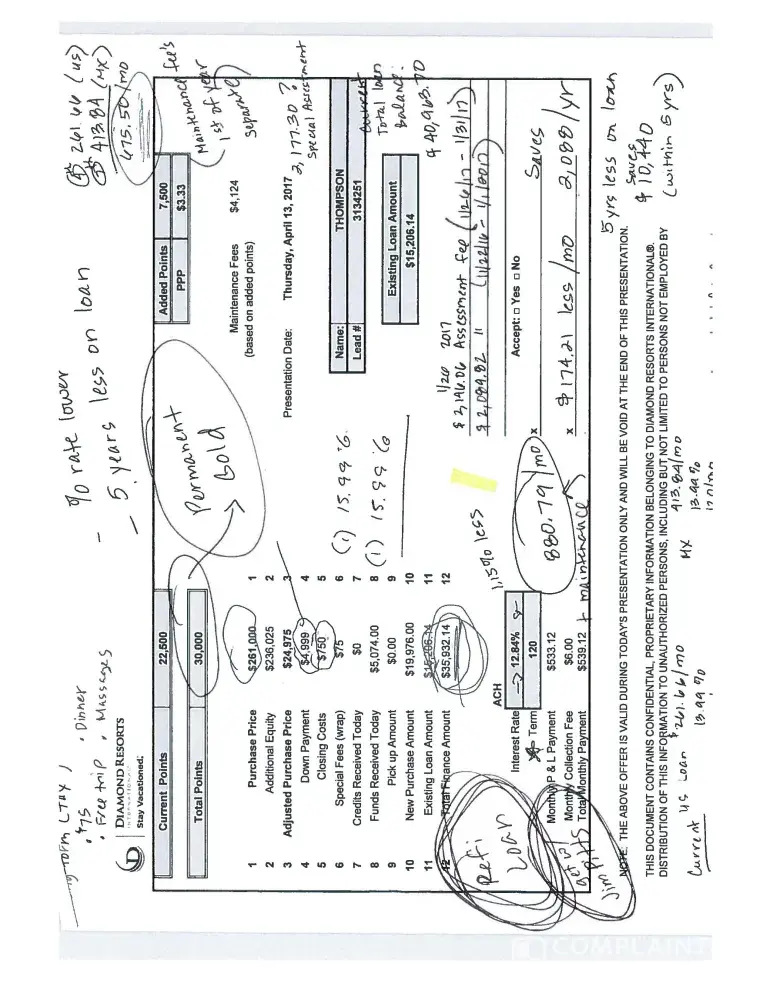 $75 , Dinner
• Free trip , Massages
- % rate lower
- 5 years less on loan
261.66 (US)
413.84 (MX)
675.50/mo
DIAMOND RESORTS
INTERNATIONAL
Stay Vacationed.
Current Points 22,500
Total Points 30,000
Permanent
Gold
Added Points 7,500
PPP $3.33
(Maintenance fee's
1st of year
separate)
Maintenance Fees $4,124
(based on added points)
Presentation Date: Thursday, April 13, 2017
2,177.30 ?
special Assessment
1 Purchase Price $261,000 1
2 Additional Equity $236,025 2
3 Adjusted Purchase Price $24,975 3
4 Down Payment $4,999 4
5 Closing Costs $750 5
6 Special Fees (wrap) $75 6
7 Credits Received Today $0 7
8 Funds Received Today $5,074.00 8
9 Pick up Amount $0.00 9
10 New Purchase Amount $19,976.00 10
11 Existing Loan Amount $15,206.14 11
12 Total Finance Amount $35,932.14 12
(1) 15.99 %
(1) 15.99 %
Name: THOMPSON
Lead # 3134251
Current
Total loan
balance:
$ 40,963.70
Existing Loan Amount
$15,206.14
1/26 2017
$ 3,196.06 Assessment fee (1/26/17 - 1/31/17)
$ 2,089.82 "
Refi
Loan
ACH
1.15% less
Interest Rate -> 12.84%
Term 120
Monthly P & L Payment $533.12
Monthly Collection Fee $6.00
Total Monthly Payment $539.12 + maintenance
880.79/mo
Accept: □ Yes □ No
x
x $174.21 less/mo
Saves
2,088/yr
get w/
Jim
NOTE: THE ABOVE OFFER IS VALID DURING TODAY'S PRESENTATION ONLY AND WILL BE VOID AT THE END OF THIS PRESENTATION.
5 yrs less on loan
saves
$ 10,440
(within 5 yrs)
THIS DOCUMENT CONTAINS CONFIDENTIAL, PROPRIETARY INFORMATION BELONGING TO DIAMOND RESORTS INTERNATIONAL®.
DISTRIBUTION OF THIS INFORMATION TO UNAUTHORIZED PERSONS, INCLUDING BUT NOT LIMITED TO PERSONS NOT EMPLOYED BY
Current US Loan $261.66/mo
13.99 %
MX 413.84/mo
13.99 %
COMPLAINTS